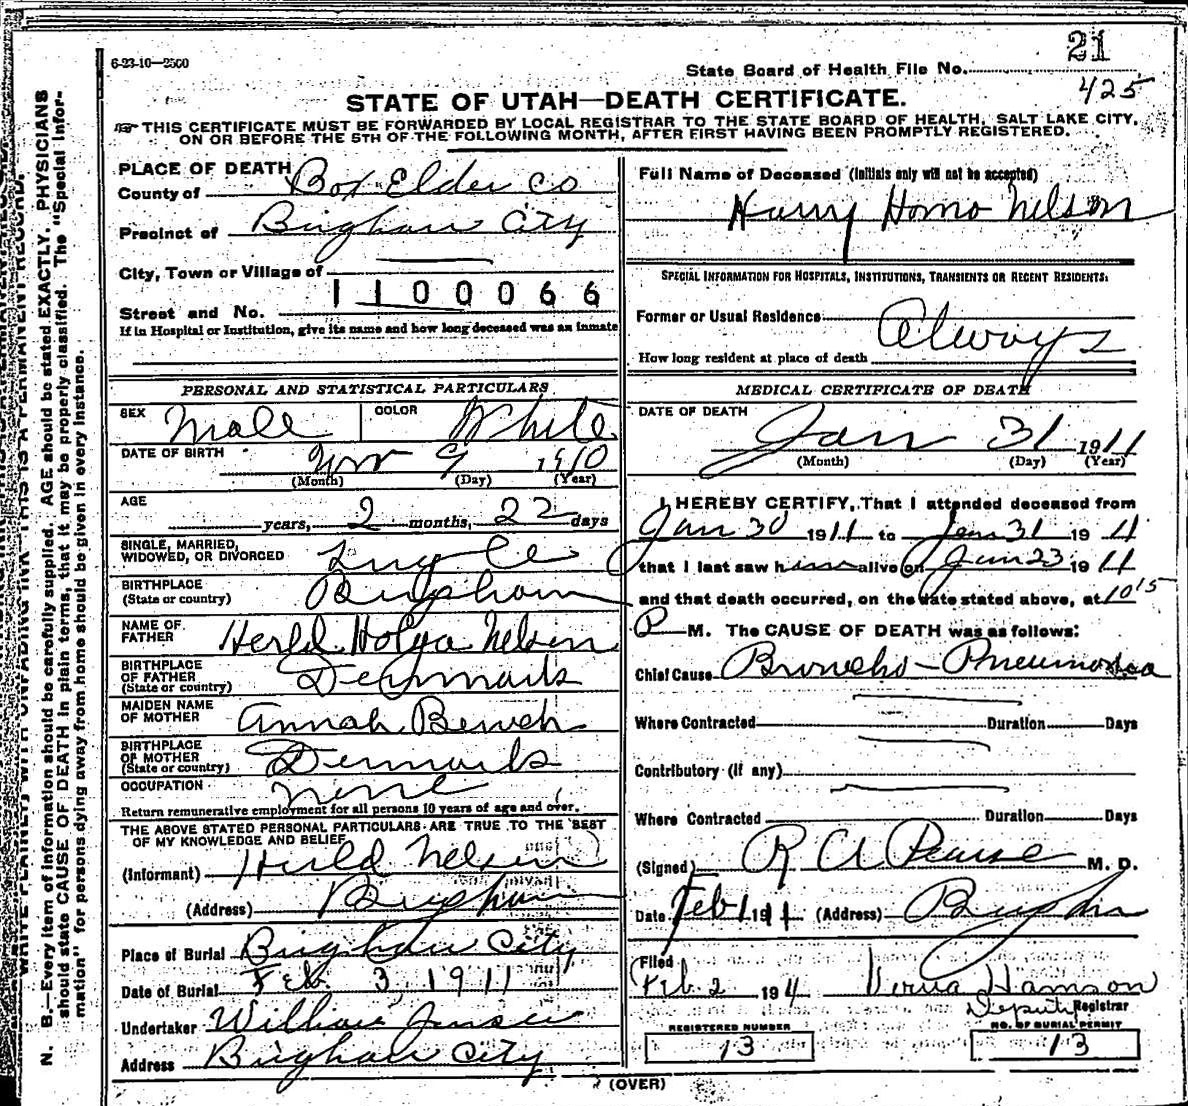 6-23-10—2500
21
State Board of Health File No.
425
STATE OF UTAH—DEATH CERTIFICATE.
THIS CERTIFICATE MUST BE FORWARDED BY LOCAL REGISTRAR TO THE STATE BOARD OF HEALTH, SALT LAKE CITY,
ON OR BEFORE THE 5TH OF THE FOLLOWING MONTH, AFTER FIRST HAVING BEEN PROMPTLY REGISTERED.
PLACE OF DEATH
County of Box Elder Co
Precinct of Brigham City
City, Town or Village of
1100066
Street and No.
If in Hospital or Institution, give its name and how long deceased was an inmate
PERSONAL AND STATISTICAL PARTICULARS
SEX Male COLOR White
DATE OF BIRTH Nov 9 1910
(Month) (Day) (Year)
AGE
years, 2 months, 22 days
SINGLE, MARRIED,
WIDOWED, OR DIVORCED Single
BIRTHPLACE
(State or country) Brigham
NAME OF
FATHER Nelson
BIRTHPLACE
OF FATHER
(State or country) Denmark
MAIDEN NAME
OF MOTHER Annah
BIRTHPLACE
OF MOTHER
(State or country) Denmark
OCCUPATION none
Return remunerative employment for all persons 10 years of age and over.
THE ABOVE STATED PERSONAL PARTICULARS ARE TRUE TO THE BEST
OF MY KNOWLEDGE AND BELIEF
(Informant) Nelson
(Address) Brigham
Place of Burial Brigham City
Date of Burial Feb. 3, 1911
Undertaker William Jensen
Address Brigham City
Full Name of Deceased (Initials only will not be accepted)
Harry Homo Nelson
SPECIAL INFORMATION FOR HOSPITALS, INSTITUTIONS, TRANSIENTS OR RECENT RESIDENTS:
Former or Usual Residence
Always
How long resident at place of death
MEDICAL CERTIFICATE OF DEATH
DATE OF DEATH
Jan 31 1911
(Month) (Day) (Year)
I HEREBY CERTIFY, That I attended deceased from
Jan 30 1911 to Jan 31 1911
that I last saw h alive on 1911
and that death occurred, on the date stated above, at 10 15
P M. The CAUSE OF DEATH was as follows:
Chief Cause Broncho-Pneumonia
Where Contracted Duration Days
Contributory (if any)
Where Contracted Duration Days
(Signed) R A Pearse M. D.
Date Feb 1 1911 (Address) Brigham
Filed
Feb. 2 1911 Verna Hamson
Deputy Registrar
REGISTERED NUMBER
13
NO. OF BURIAL PERMIT
13
(OVER)
N. B.—Every item of information should be carefully supplied. AGE should be stated EXACTLY. PHYSICIANS
should state CAUSE OF DEATH in plain terms, that it may be properly classified. The "Special Infor-
mation" for persons dying away from home should be given in every instance.